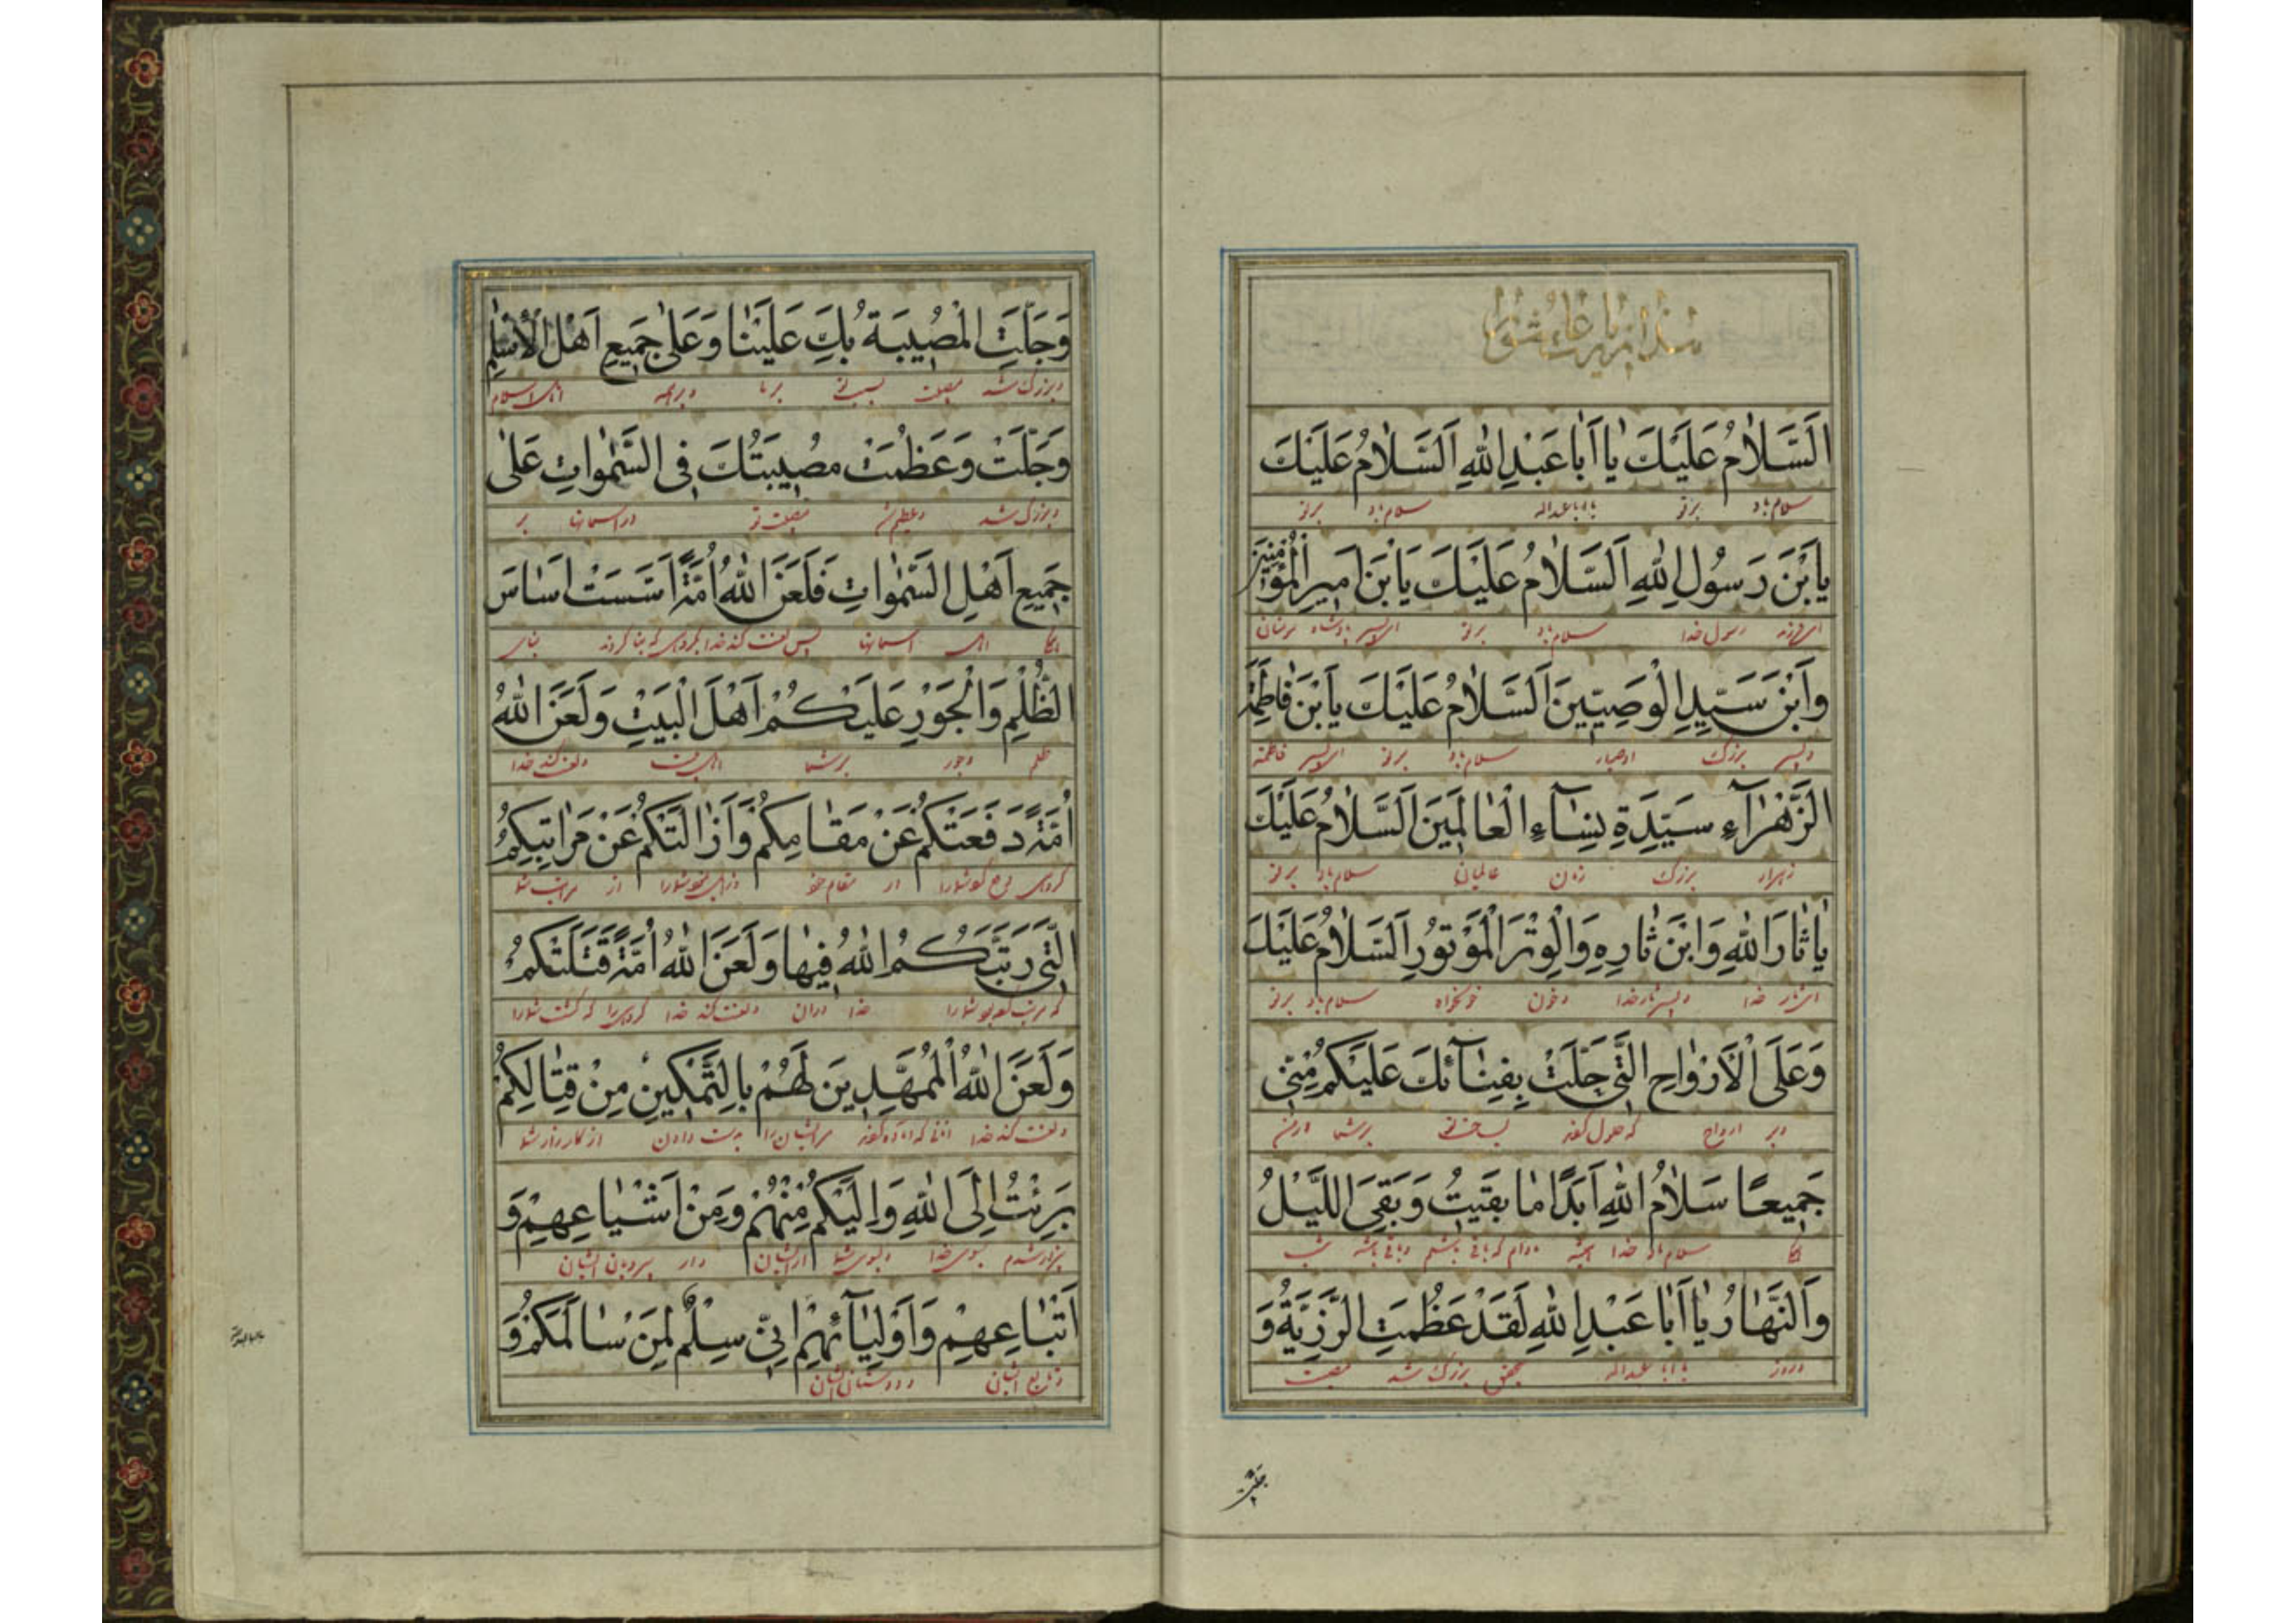 هذا زیارت عاشورا
اَلسَّلاٰمُ عَلَیْكَ یٰا اَبٰا عَبْدِاللهِ اَلسَّلاٰمُ عَلَیْكَ
سلام باد برتو یا اباعبداله سلام باد برتو
یَابْنَ رَسُولِ اللهِ اَلسَّلاٰمُ عَلَیْكَ یَابْنَ اَمیرِالْمُؤْمِنینَ
ای فرزند رسول خدا سلام باد برتو ای پسر پادشاه مؤمنان
وَابْنَ سَیِّدِ الْوَصِیّینَ اَلسَّلاٰمُ عَلَیْكَ یَابْنَ فٰاطِمَةَ
و پسر بزرك اوصیاء سلام باد برتو ای پسر فاطمه
الزَّهْرٰآءِ سَیِّدَةِ نِسٰآءِ الْعٰالَمینَ اَلسَّلاٰمُ عَلَیْكَ
زهراء بزرك زنان عالمیان سلام باد برتو
یٰا ثٰارَ اللهِ وَابْنَ ثٰارِهِ وَالْوِتْرَ الْمَوْتُورِ اَلسَّلاٰمُ عَلَیْكَ
ای ثار خدا و پسر ثار خدا و خون خونخواه سلام باد برتو
وَعَلَی الْاَرْوٰاحِ الَّتی حَلَّتْ بِفِنٰآئِكَ عَلَیْكُمْ مِنّی
و بر ارواح که حلول کرده بساحت تو برشما از من
جَمیعًا سَلاٰمُ اللهِ اَبَدًا مٰا بَقیتُ وَ بَقِیَ اللَّیْلُ
سلام باد خدا همیشه مادام که باقی باشم و باقی باشد شب
وَالنَّهٰارُ یٰا اَبٰا عَبْدِاللهِ لَقَدْ عَظُمَتِ الرَّزِیَّةُ وَ
و روز یا ابا عبداله بتحقیق بزرك شد مصیبت
جلت
وَجَلَّتِ الْمُصیبَةُ بِكَ عَلَیْنٰا وَعَلیٰ جَمیعِ اَهْلِ الْاِسْلٰمِ
و بزرك شد مصیبت بسبب تو برما و برهمه اهل اسلام
وَجَلَّتْ وَعَظُمَتْ مُصیبَتُكَ فِی السَّمٰوٰاتِ عَلیٰ
و بزرك شد و عظیم شد مصیبت تو در آسمانها بر
جَمیعِ اَهْلِ السَّمٰوٰاتِ فَلَعَنَ اللهُ اُمَّةً اَسَّسَتْ اَسٰاسَ
اهل آسمانها پس لعنت کند خدا گروهی که بنا کردند بنای
الظُّلْمِ وَالْجَوْرِ عَلَیْكُمْ اَهْلَ الْبَیْتِ وَلَعَنَ اللهُ
ظلم و جور برشما اهل بیت و لعنت کند خدا
اُمَّةً دَفَعَتْكُمْ عَنْ مَقٰامِكُمْ وَاَزٰالَتْكُمْ عَنْ مَرٰاتِبِكُمُ
گروهی دفع کرد شما را از مقام خود شما را از مراتب شما
الَّتی رَتَّبَكُمُ اللهُ فیهٰا وَلَعَنَ اللهُ اُمَّةً قَتَلَتْكُمْ
شما را خدا در آن و لعنت کند خدا گروهی را که کشت شما را
وَلَعَنَ اللهُ الْمُمَهِّدینَ لَهُمْ بِالتَّمْكینِ مِنْ قِتٰالِكُمْ
و لعنت کند خدا ایشان را دادن از کارزار شما
بَرِئْتُ اِلَی اللهِ وَاِلَیْكُمْ مِنْهُمْ وَمِنْ اَشْیٰاعِهِمْ وَ
بیزار شدم بسوی خدا و بسوی شما از ایشان و از پیروان ایشان
اَتْبٰاعِهِمْ وَاَوْلِیٰآئِهِمْ اِنّی سِلْمٌ لِمَنْ سٰالَمَكُمْ وَ
و تابع ایشان و دوستان ایشان